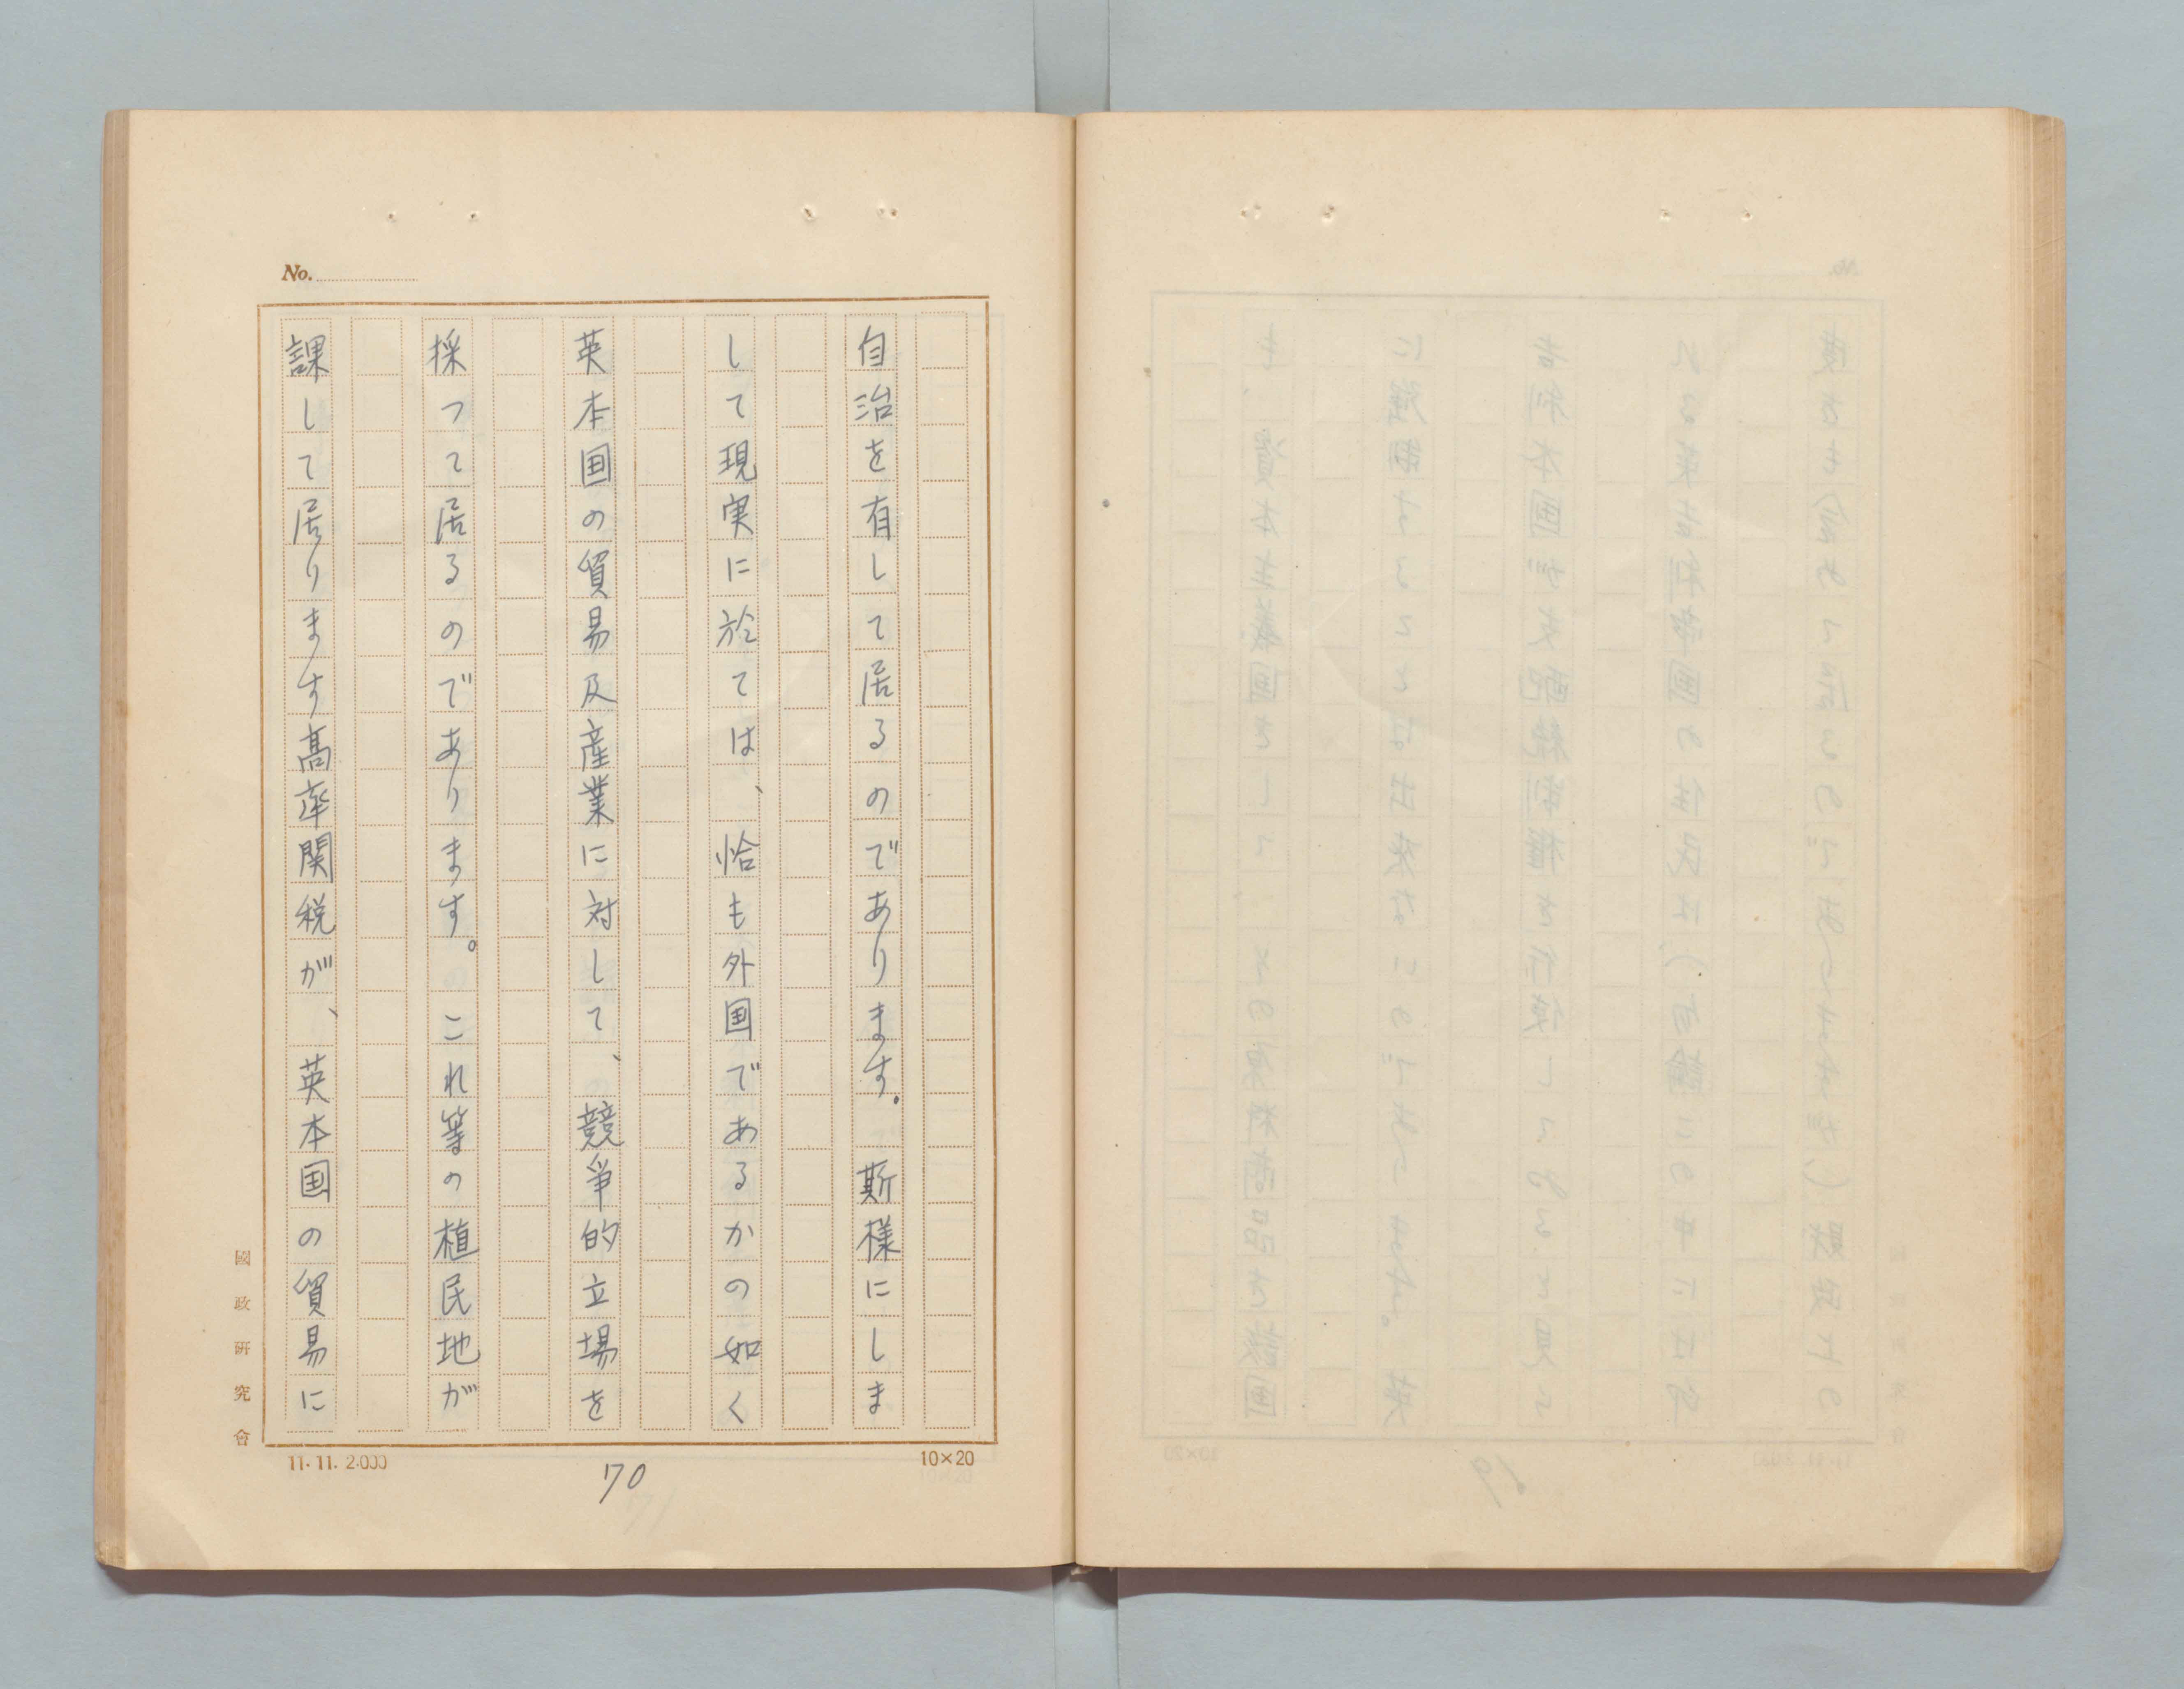 No.
自治を有して居るのであります。斯様にしま
して現実に於ては、恰も外国であるかの如く
英本国の貿易及産業に対して、競争的立場を
採つて居るのであります。これ等の植民地が
課して居ります高率関税が、英本国の貿易に
國政研究會
11.11.2.000
70
10×20